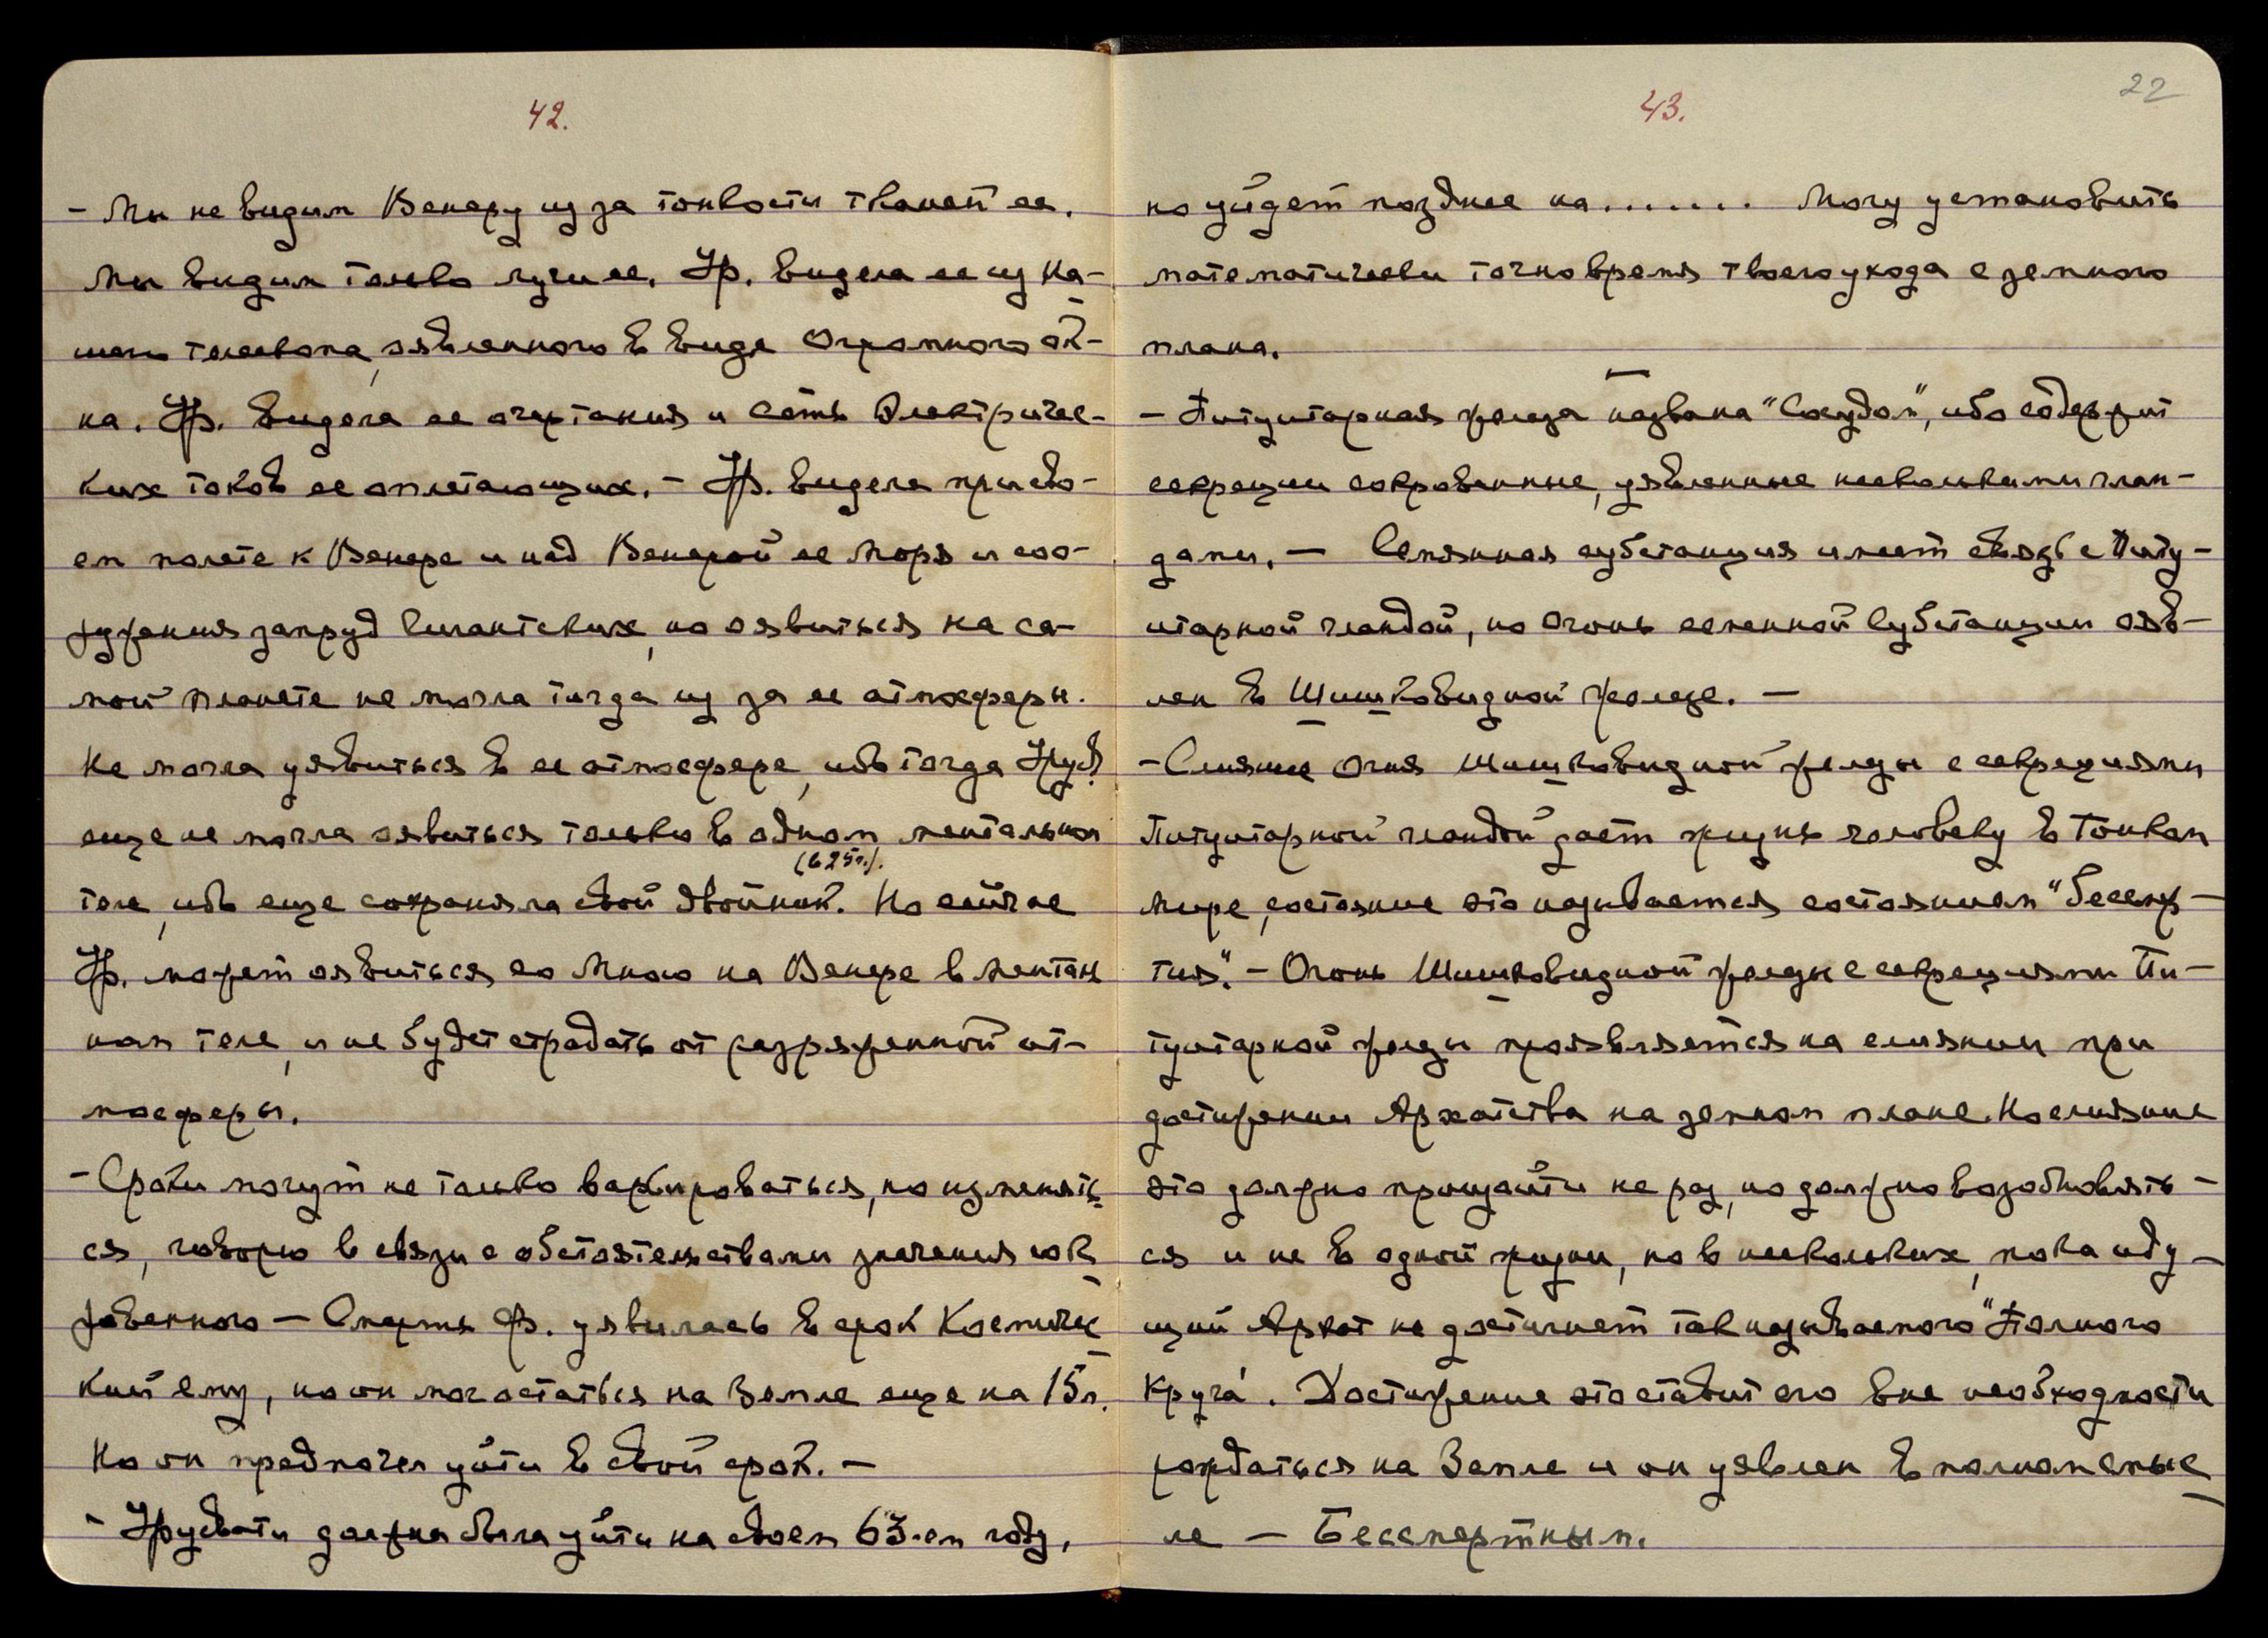 42.
- Мы не видим Венеру из за тонкости тканей ее.
Мы видим только лучи ее. Ур. видела ее из На-
шего телескопа, оявленного в виде Огромного ок-
на. Ур. видела ее очертания и сеть Электричес-
ких токов ее оплетающих. - Ур. видела при сво-
ем полете к Венере и над Венерой ее Моря и соо-
ружения запруд Гигантских, но оявиться на са-
мой планете не могла тогда из за ее атмосферы.
Не могла уявиться в ее атмосфере, ибо тогда Урусв.
еще не могла оявиться только в одном ментальном
(625г.).
теле, ибо еще сохраняла свой двойник. Но сейчас
Ур. может оявиться со Мною на Венере в менталь
ном теле, и не будет страдать от разряженной ат-
мосферы.
- Сроки могут не только варьироваться, но изменять
ся, говорю в связи с обстоятельствами значения сок
ровенного — Смерть Ф. уявилась в срок Космичес
кий ему, но он мог остаться на Земле еще на 15л.
Но он предпочел уйти в свой срок. —
- Урусвати должна была уйти на своем 63-ем году,
22
43.
но уйдет позднее на....... Могу установить
математически точно время твоего ухода с земного
плана.
- Питуитарная железа названа "Сосудом", ибо содержит
секреции сокровенные, уявленные несколькими глан-
дами. — Семянная субстанция имеет связь с Питу-
итарной гландой, но Огонь семенной Субстанции ояв-
лен в Шишковидной железе. —
- Слияние Огня Шишковидной железы с секрециями
Питуитарной гландой дает жизнь человеку в Тонком
Мире, состояние это называется состоянием "бессмер-
тия". - Огонь Шишковидной железы с секрециями Пи-
туитарной железы проявляется на слиянии при
достижении Архатства на земном плане. Но слияние
это должно произойти не раз, но должно возобновлять-
ся и не в одной жизни, но в нескольких, пока иду-
щий Архат не достигнет так называемого "Полного
Круга". Достижение это ставит его вне необходности
рождаться на Земле и он уявлен в полном смыс
ле — Бессмертным.